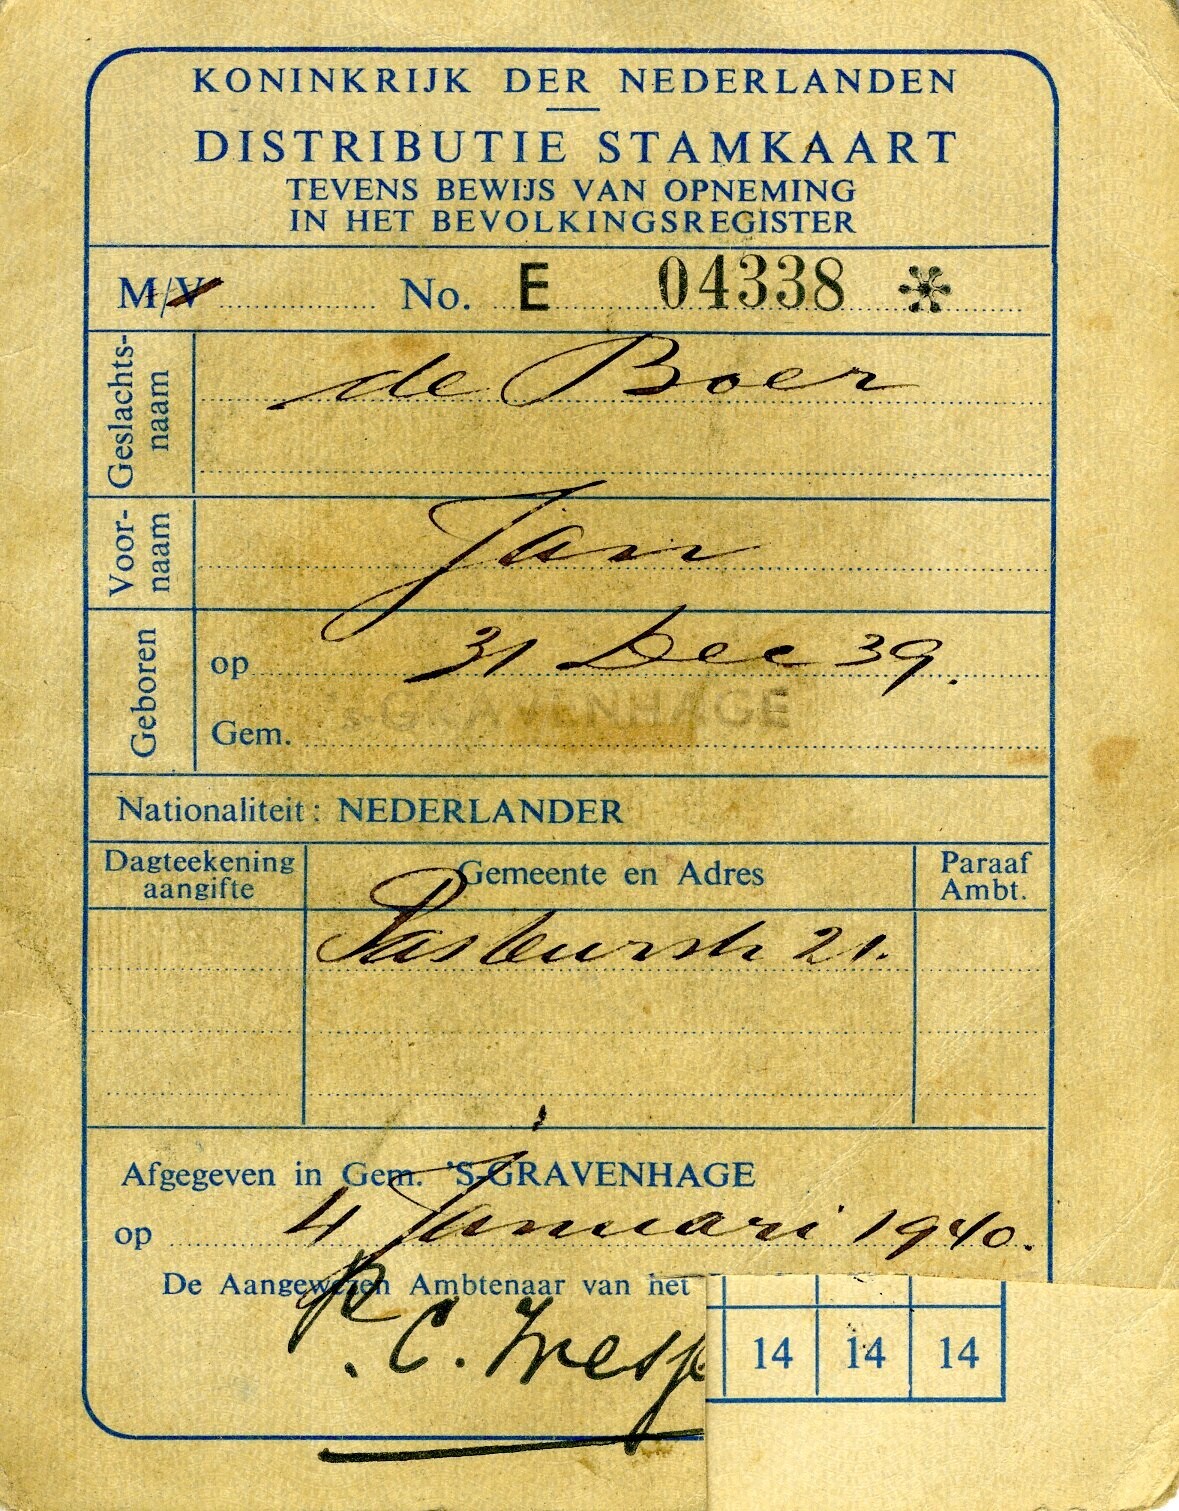 KONINKRIJK DER NEDERLANDEN
DISTRIBUTIE STAMKAART
TEVENS BEWIJS VAN OPNEMING
IN HET BEVOLKINGSREGISTER
M/V No. E 04338 *
Geslachts-
naam
de Boer
Voor-
naam
Jan
Geboren
op 31 Dec 39.
Gem. 's-GRAVENHAGE
Nationaliteit: NEDERLANDER
Dagteekening
aangifte
Gemeente en Adres
Paraaf
Ambt.
Pasteurstr 21.
Afgegeven in Gem. 'S-GRAVENHAGE
op 4 Januari 1940.
De Aangewezen Ambtenaar van het
C.
14 14 14